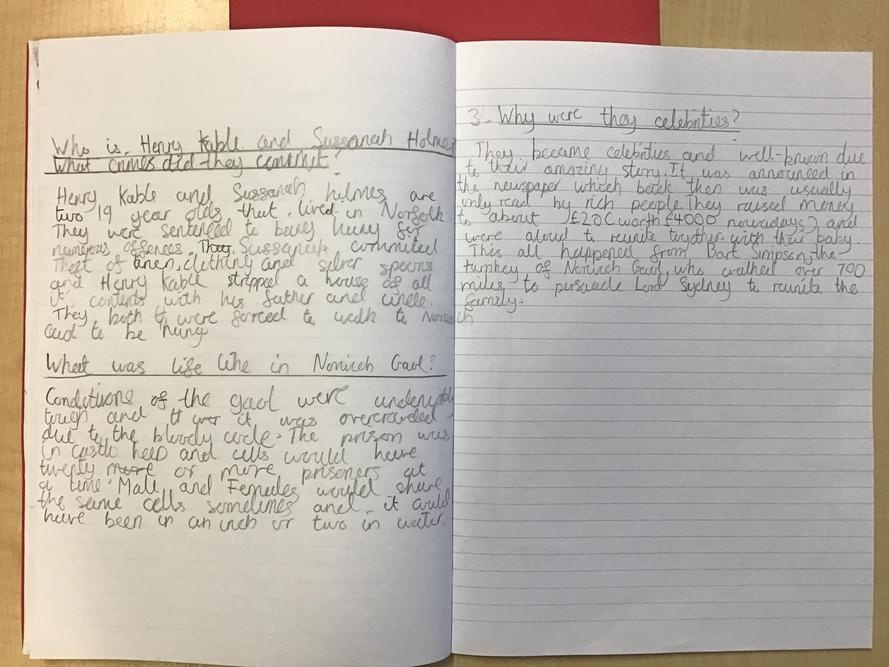 Who is Henry Kable and Sussanah Holmes
What crimes did they commit?
Henry Kable and Sussanah holmes are
two 19 year olds that lived in Norfolk.
They were sentenced to being hung for
numerous offences. Sussanah commited
Theft of linen, clothing and silver spoons
and Henry Kable stripped a house of all
it contents with his father and uncle.
They both were forced to walk to Norwich
Gaol to be hung
What was life like in Norwich Gaol?
Conditions of the gaol were undeniably
tough and it was overcrowded
due to the bloody code. The prison was
in castle keep and cells would have
twenty or more prisoners at
a time. Male and Females would share
the same cells sometimes and it could
have been in an inch or two in water.
3. Why were they celebrities?
They became celebrities and well-known due
to their amazing story. It was announced in
the newspaper which back then was usually
only read by rich people. They raised money
to about £20 (worth £4000 nowadays) and
were aloud to reunite together with their baby.
This all happened from Bart Simpson, the
turnkey of Norwich Gaol, who walked over 700
miles to persuade Lord Sydney to reunite the
family.